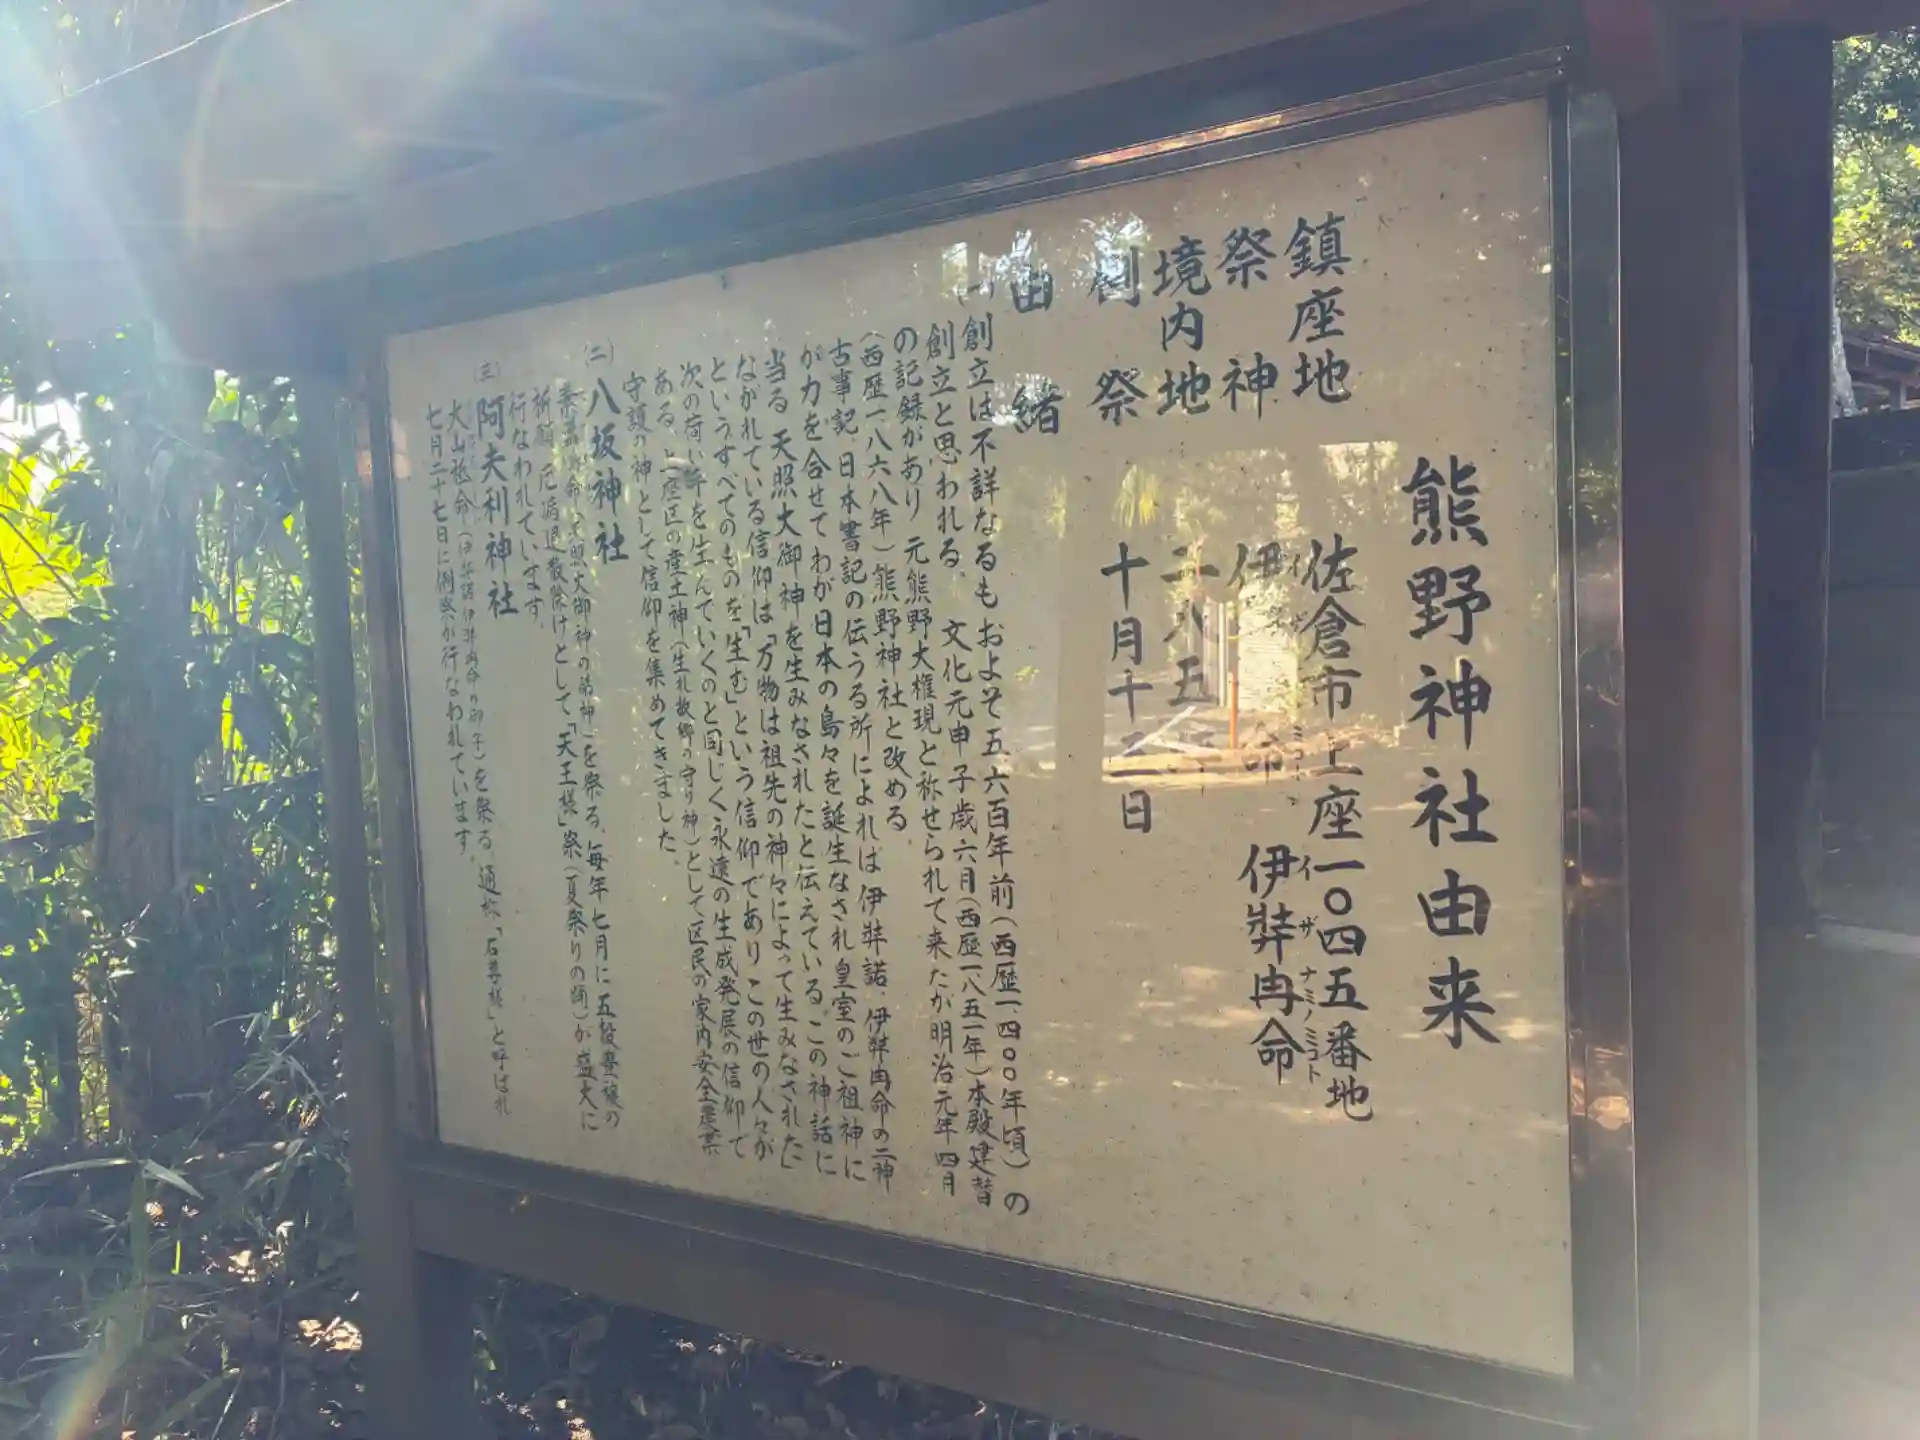 熊野神社由来
鎮座地 佐倉市上座一〇四五番地
祭神 伊弉 命 伊弉冉命
イザ ミコト イザナミノミコト
境内地 二八五
例祭 十月十二日
由緒
(一)創立は不詳なるもおよそ五、六百年前(西歴一、四〇〇年頃)の
創立と思われる。文化元申子歳六月(西歴一八五一年)本殿建替
の記録があり元熊野大権現と称せられて来たが明治元年四月
(西歴一、八六八年)熊野神社と改める。
古事記、日本書記の伝うる所によれば伊弉諾、伊弉冉命の二神
が力を合せてわが日本の島々を誕生なされ皇室のご祖神に
当る天照大御神を生みなされたと伝えている。この神話に
ながれている信仰は「万物は祖先の神々によって生みなされた」
というすべてのものを「生む」という信仰でありこの世の人々が
次の荷い手を生んでいくのと同じく永遠の生成発展の信仰で
ある。上座区の産土神(生れ故郷の守り神)として区民の家内安全
守護の神として信仰を集めてきました。
(二)八坂神社
命(天照大御神の弟神)を祭る。毎年七月に五穀豊穣の
祈願、厄病退散除けとして、「天王様」祭(夏祭りの踊)が盛大に
行なわれています。
(三)阿夫利神社
大山祗命(伊弉諾伊弉冉命の御子)を祭る。通称「石尊様」と呼ばれ
七月二十七日に例祭が行なわれています。